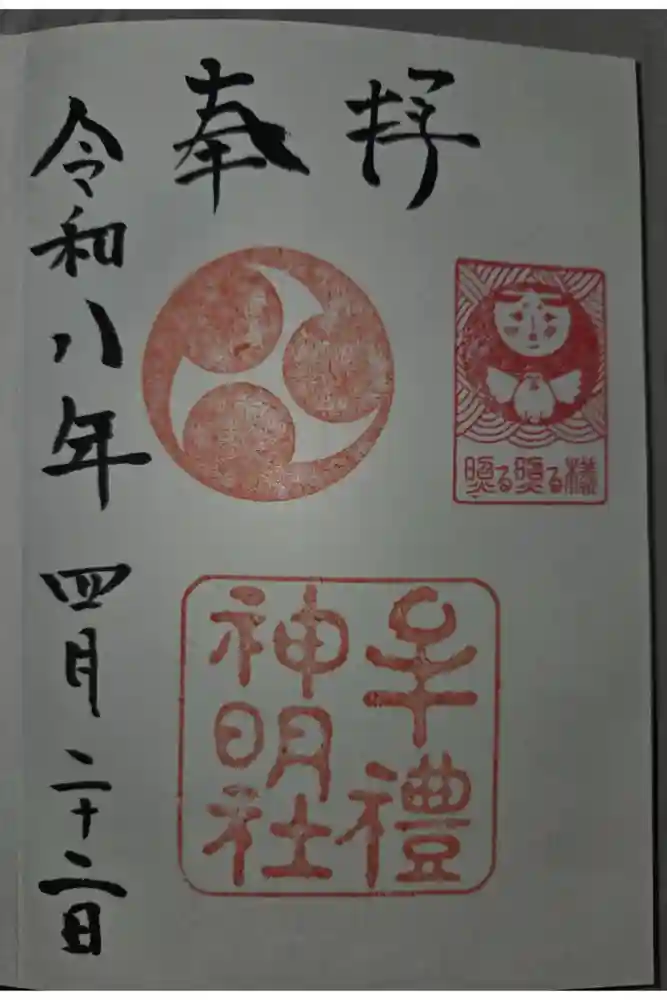 奉拝
照る照る様
牟禮
神明社
令和八年四月二十二日